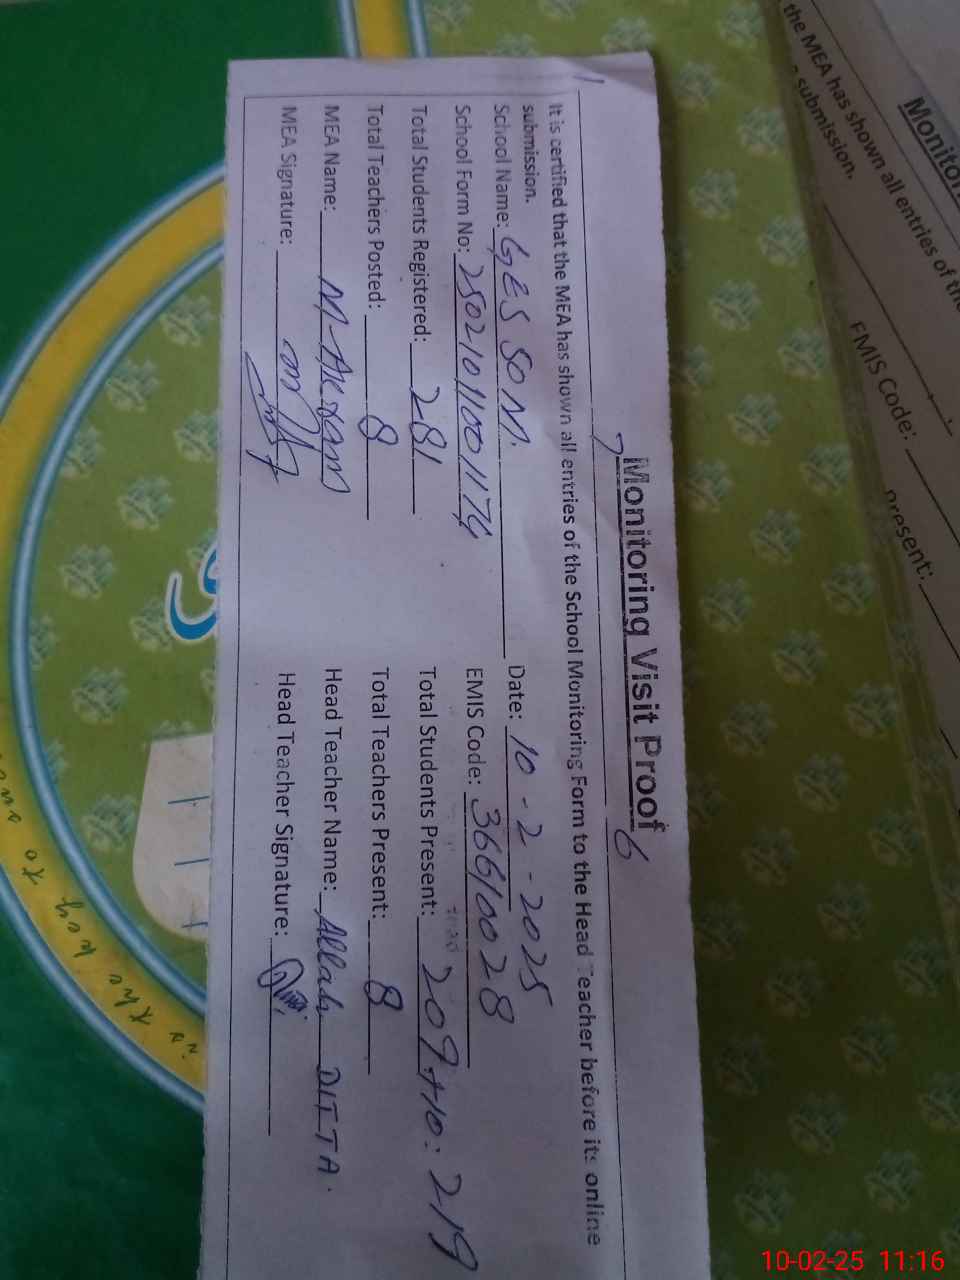 Monitoring Visit Proof
7 6
It is certified that the MEA has shown all entries of the School Monitoring Form to the Head Teacher before its online
submission.
School Name: GES 50 M. Date: 10-2-2025
School Form No: 25021011001174 EMIS Code: 36610028
Total Students Registered: 281 Total Students Present: 209+10: 219
Total Teachers Posted: 8 Total Teachers Present: 8
MEA Name: M-Akram Head Teacher Name: Allah DITTA.
MEA Signature: Head Teacher Signature:
Monitor
the MEA has shown all entries of the
submission.
EMIS Code:
present:
10-02-25 11:16